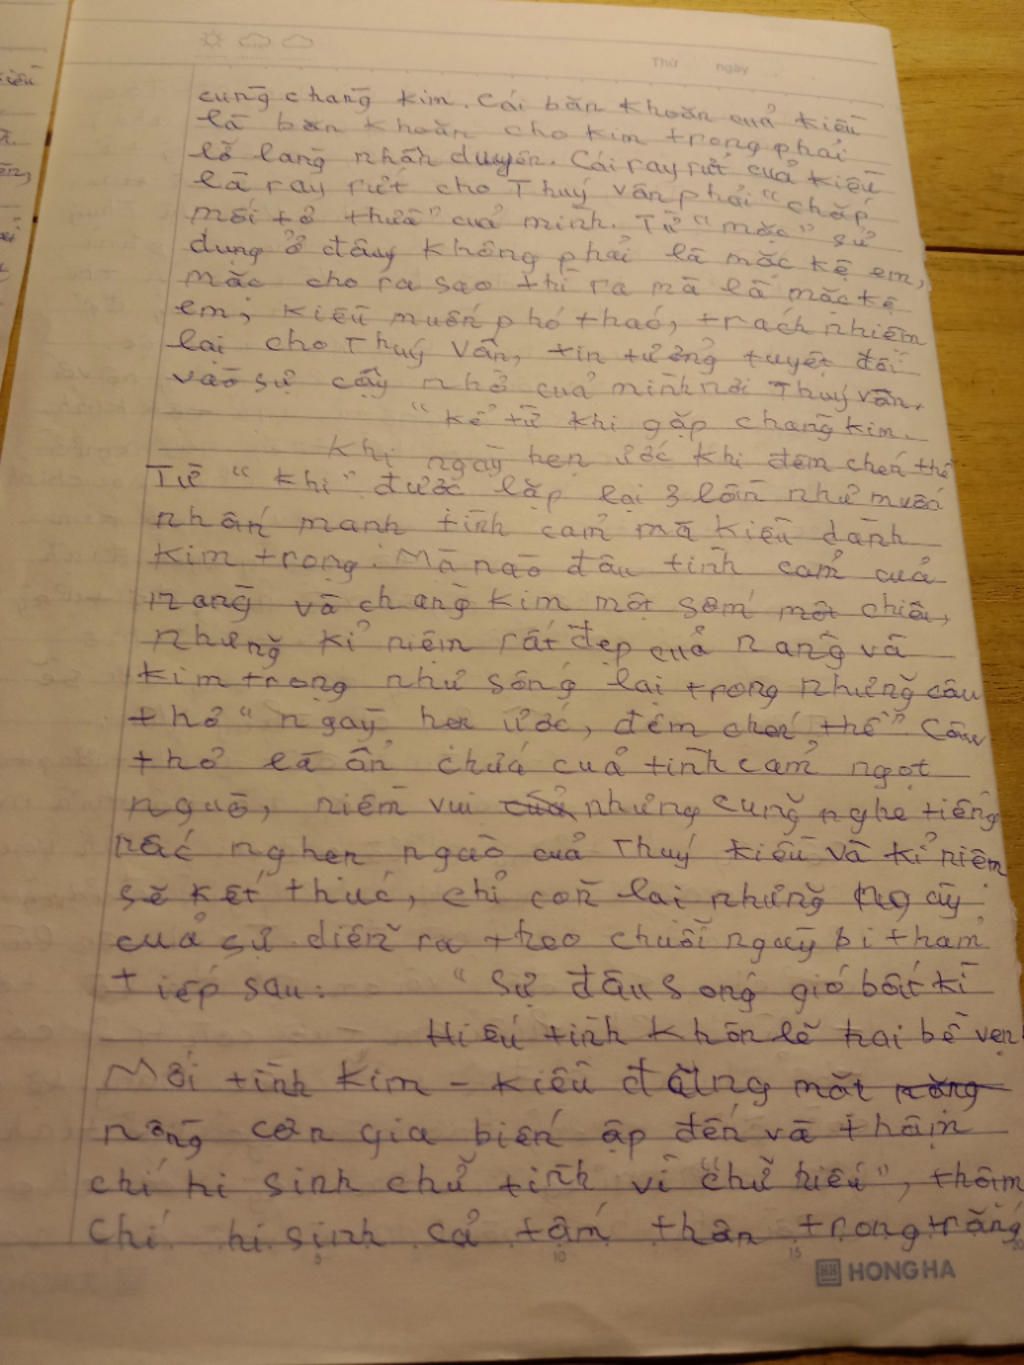 Thứ ngày
cùng chàng Kim. Cái băn khoăn của Kiều
là băn khoăn cho Kim Trọng phải
lỡ làng nhân duyên. Cái ray rứt của Kiều
là ray rứt cho Thuý Vân phải "chắp
mối tơ thừa" của mình. Từ "mặc" sử
dụng ở đây không phải là mặc kệ em,
mặc cho ra sao thì ra mà là mặc kệ
em, Kiều muốn phó thác, trách nhiệm
lại cho Thuý Vân, tin tưởng tuyệt đối
vào sự cậy nhờ của mình nơi Thuý Vân.
"Kể từ khi gặp chàng Kim.
Khi ngày hẹn ước khi đêm chén thề
Từ "khi" được lặp lại 3 lần như muốn
nhấn mạnh tình cảm mà Kiều dành
Kim Trọng. Mà nào đâu tình cảm của
nàng và chàng Kim một sớm một chiều,
những kỉ niệm rất đẹp của nàng và
Kim Trọng như sống lại trong những câu
thơ "ngày hẹn ước, đêm chén thề" Câu
thơ là ẩn chứa của tình cảm ngọt
ngào, niềm vui của nhưng cũng nghe tiếng
nấc nghẹn ngào của Thuý Kiều và kỉ niệm
sẽ kết thúc, chỉ còn lại những ngày
của sự diễn ra theo chuỗi ngày bi thảm
tiếp sau: "Sự đâu sóng gió bất kì
Hiếu tình khôn lẽ hai bề vẹn
Mối tình Kim - Kiều đang mặt nặng
nồng cơn gia biến ập đến và thậm
chí hi sinh chữ tình vì "chữ hiếu", thậm
chí hi sinh cả tấm thân trong trắng
5 10 15 20
HONG HA